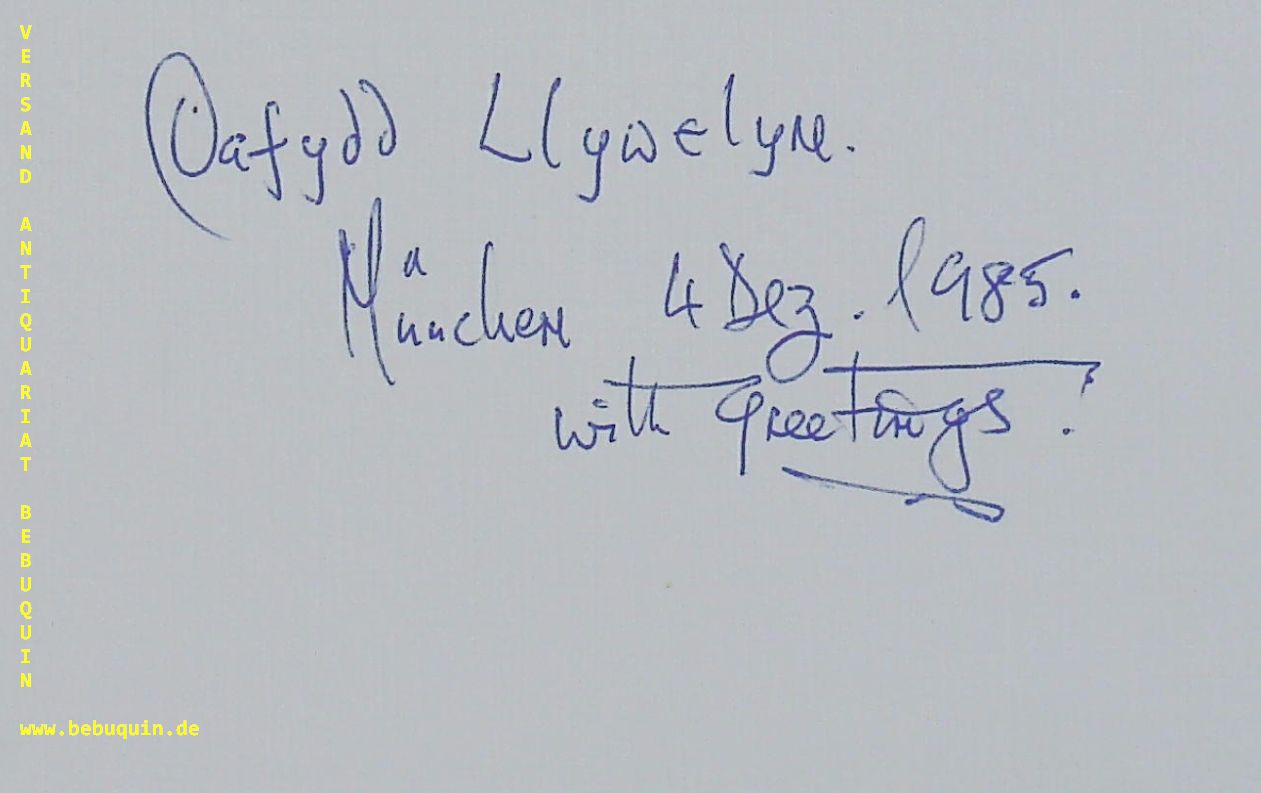 VERSAND ANTIQUARIAT BEBUQUIN
Dafydd Llywelyn.
München 4 Dez. 1985.
with greetings!
www.bebuquin.de